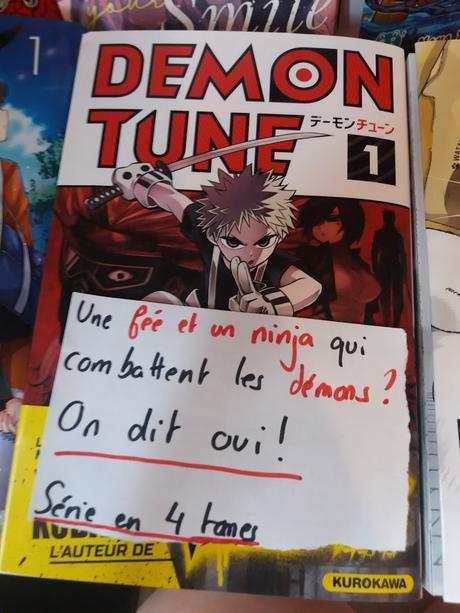 your
Smile
1
DEMON
TUNE
デーモンチューン
1
Une fée et un ninja qui
combattent les démons ?
On dit oui !
Série en 4 tomes
L'AUTEUR DE
KUROKAWA